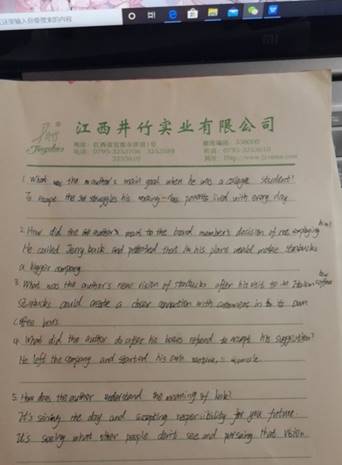 江西井竹实业有限公司
Jingzhu
1. What was the author's main goal when he was a college student?
To escape the struggles his working-class parents lived with every day.
2. How did the author react to the board member's decision of not employing him?
He called Jerry back and his plans would make Starbucks
a bigger company.
3. What was the author's new vision of Starbucks after his visit to an Italian coffee bar
Starbucks could create a closer connection with customers in its own
coffee bars.
4. What did the author do after his bosses refused to accept his suggestion?
He left the company and started his own
5. How does the author understand the meaning of luck?
It's seizing the day and accepting responsibility for your future.
It's seeing what other people don't see and pursuing that vision.